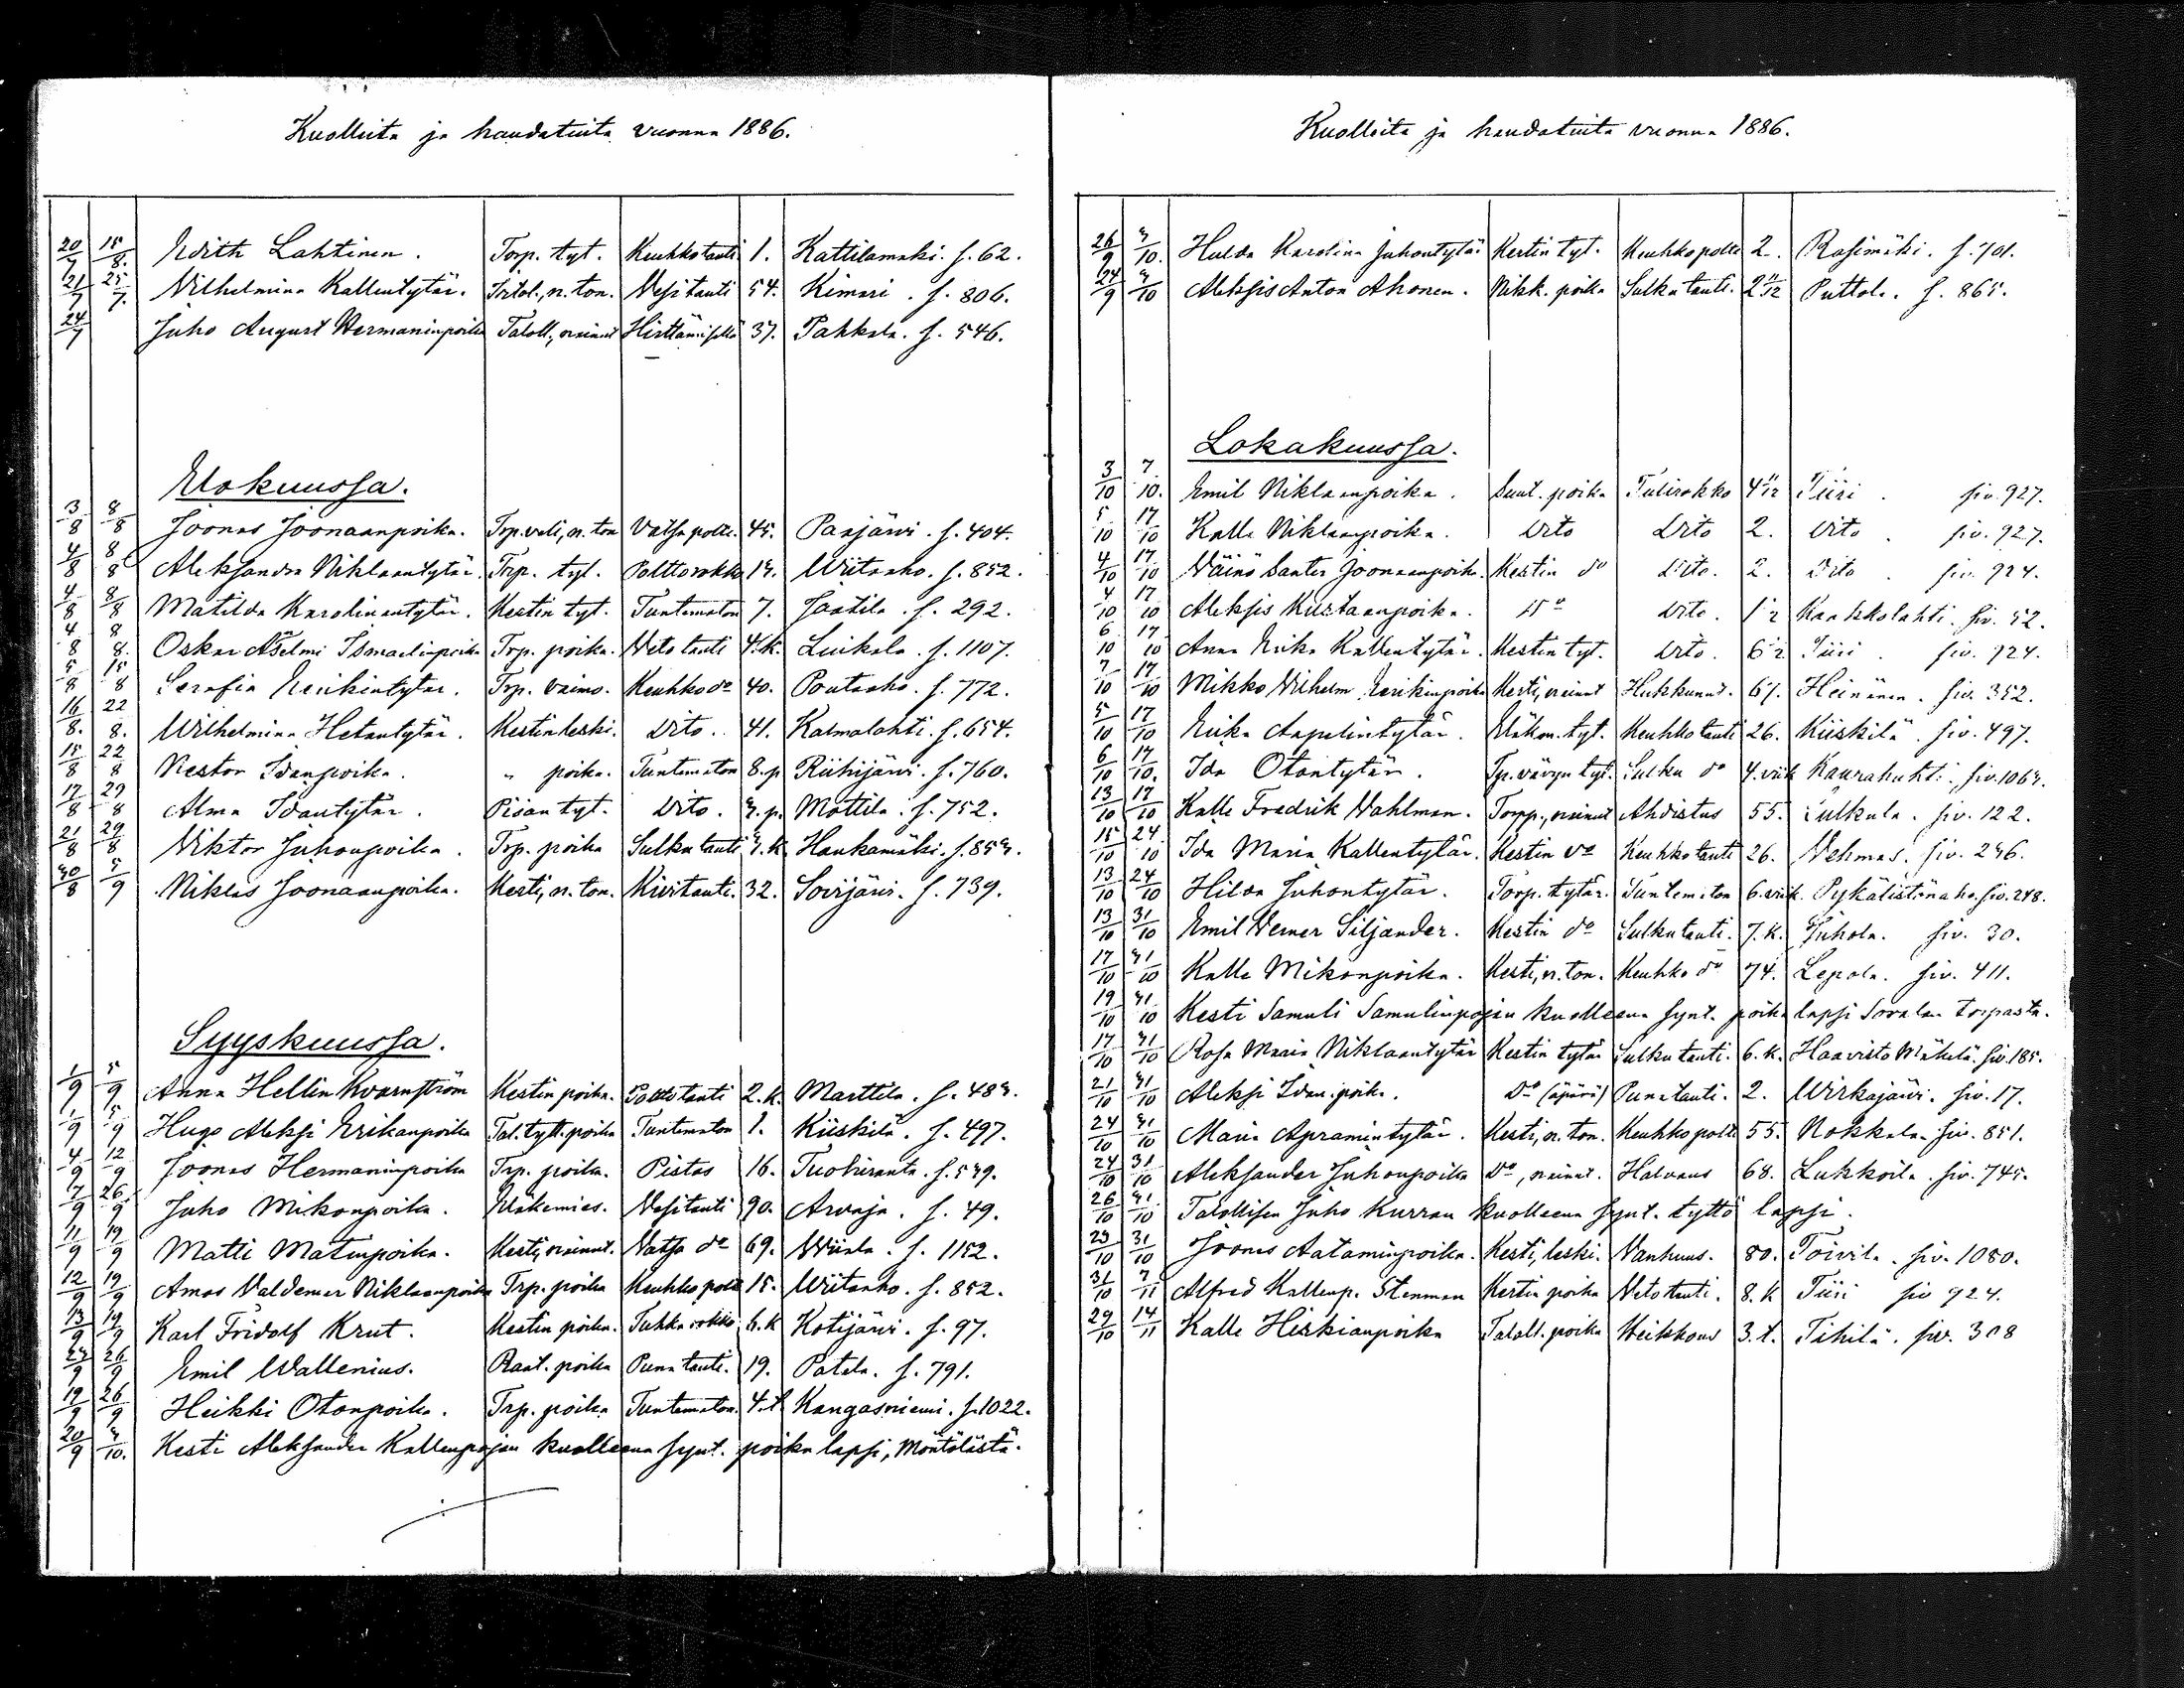 Kuolleita ja haudatuita vuonna 1886.
20/7 15/8. Edith Lahtinen. Torp. tyt. Keuhkotauti 1. Kattilamäki. s. 62.
21/7 25/7. Vilhelmina Kallentytär. Itol., n. ton. Vesitauti 54. Kimari. s. 806.
24/7 Juho August Hermaninpoika Taloll., nainut Hirttämisellä 37. Pahkala. s. 546.
Elokuussa.
3/8 8/8 Joonas Joonaanpoika. Trp. veli, n. ton Vatsa poltt. 45. Paajärvi. s. 404.
4/8 8/8 Aleksandra Niklaantytär. Trp. tyt. Polttorokko 13. Wiitaaho. s. 852.
4/8 8/8 Matilda Karolinantytär. Kestin tyt. Tuntematon 7. Jaatila. s. 292.
4/8 8/8. Oskar Aselmi Ismaelinpoika Trp. poika. Veto tauti 4.k. Luikala. s. 1107.
5/8 15/8 Serafia Henrikintytär. Trp. vaimo. Keuhko do 40. Poutaaho. s. 772.
16/8. 22/8. Wilhelmina Hetantytär. Kestin leski. Dito. 41. Kalmalahti. s. 654.
15/8 22/8 Nestor Idanpoika. " poika. Tuntematon 8.p. Riihijärvi. s. 760.
17/8 29/8 Alma Idantytär. Piian tyt. Dito. 3.p. Mottila. s. 752.
21/8 29/8 Viktor Juhonpoika. Trp. poika Sulku tauti 3.k. Haukamäki. s. 853.
30/8 5/9 Niklas Joonaanpoika. Kesti, n. ton. Kivitauti. 32. Sovijärvi. s. 739.
Syyskuussa.
1/9 5/9 Anna Hellin Kvarnström Kestin poika. tauti 2.k. Marttila. s. 483.
1/9 5/9 Hugo Aleksi Erikanpoika Tal. tytt. poika Tuntematon 1. Kiiskilä. s. 497.
4/9 12/9 Joonas Hermaninpoika Trp. poika. Pistos 16. Tuohiranta. s. 539.
7/9 26/9 Juho Mikonpoika. Eläkemies. Vesitauti 90. Arvaja. s. 49.
11/9 19/9 Matti Matinpoika. Kesti, nainut. Vatsa do 69. Wiiala. s. 1152.
12/9 19/9 Amos Valdemar Niklaanpoika Trp. poika Keuhko poltt 15. Wiitaaho. s. 852.
13/9 19/9 Karl Fridolf Krut. Kestin poika. Tuhka rokko 6.k Kotijärvi. s. 97.
23/9 26/9 Emil Wallenius. Raat. poika Puna tauti. 19. Patala. s. 791.
19/9 26/9 Heikki Otonpoika. Trp. poika Tuntematon. 4.t Kangasniemi. s. 1022.
20/9 3/10. Kesti Aleksander Kallenpojan kuolleena synt. poika lapsi, Möntölästä.
Kuolleita ja haudatuita vuonna 1886.
26/9 3/10. Hulda Karolina Juhontytär Kestin tyt. Keuhkopoltt 2. Rasimäki. s. 701.
24/9 3/10 Aleksis Anton Ahonen. Nikk. poika Sulku tauti. 2 11/12 Puttola. s. 865.
Lokakuussa.
3/10 7/10. Emil Niklaanpoika. Suut. poika Tulirokko 4 11/12 Tiiri. siv. 927.
5/10 17/10 Kalle Niklaanpoika. Dito Dito 2. Dito. siv. 927.
4/10 17/10 Väinö Santer Joonaanpoika. Kestin do Dito. 2. Dito. siv. 924.
4/10 17/10 Aleksis Kustaanpoika. Do Dito. 1/2 Kaakkolahti. siv. 52.
6/10 17/10 Anna Erika Kallentytär. Kestin tyt. Dito. 6 1/2 Tiiri. siv. 924.
7/10 17/10 Mikko Vilhelm Henrikinpoika Kesti, nainut Hukkunut. 67. Heinänen. siv. 352.
5/10 17/10 Erika Aapelintytär. Eläkm. tyt. Keuhko tauti 26. Kiiskilä. siv. 497.
6/10 17/10. Ida Otontytär. Tp. vävyn tyt. Sulku do 4.viik Kaurahuhti. siv. 1063.
13/10 17/10 Kalle Fredrik Vahlman. Torpp., nainut Ahdistus 55. Sulkula. siv. 122.
15/10 24/10 Ida Maria Kallentytär. Kestin do Keuhkotauti 26. Vehmas. siv. 236.
13/10 24/10 Hilda Juhontytär. Torp. tytär. Tuntematon 6.viik. Pykälistönaho. siv. 248.
13/10 31/10 Emil Verner Siljander. Kestin do Sulku tauti. 7.k. Juhola. siv. 30.
17/10 31/10 Kalle Mikonpoika. Kesti, n. ton. Keuhko do 74. Lepola. siv. 411.
19/10 31/10 Kesti Samuli Samulinpojan kuolleena synt. poika lapsi Soralan torpasta.
17/10 31/10 Rosa Maria Niklaantytär Kestin tytär Sulku tauti. 6.k. Haavisto Mäkelä. siv. 185.
21/10 31/10 Aleksi Idan.poika. Do (äpärä) Puna tauti. 2. Wirkajärvi. siv. 17.
24/10 31/10 Maria Apramintytär. Kesti, n. ton. Keuhko poltt 55. Nokkala. siv. 851.
24/10 31/10 Aleksander Juhonpoika Do, nainut. Halvaus 68. Lukkoila. siv. 745.
26/10 31/10 Talollisen Juho Kurran kuolleena synt. tyttö lapsi.
23/10 31/10 Joonas Aataminpoika. Kesti, leski. Vanhuus. 80. Toivila. siv. 1080.
31/10 7/11 Alfred Kallenp. Stenman Kestin poika Veto tauti. 8.k Tiiri siv 924.
29/10 14/11 Kalle Hiskianpoika Taloll. poika Heikkous 3.t. Tihilä. siv. 308